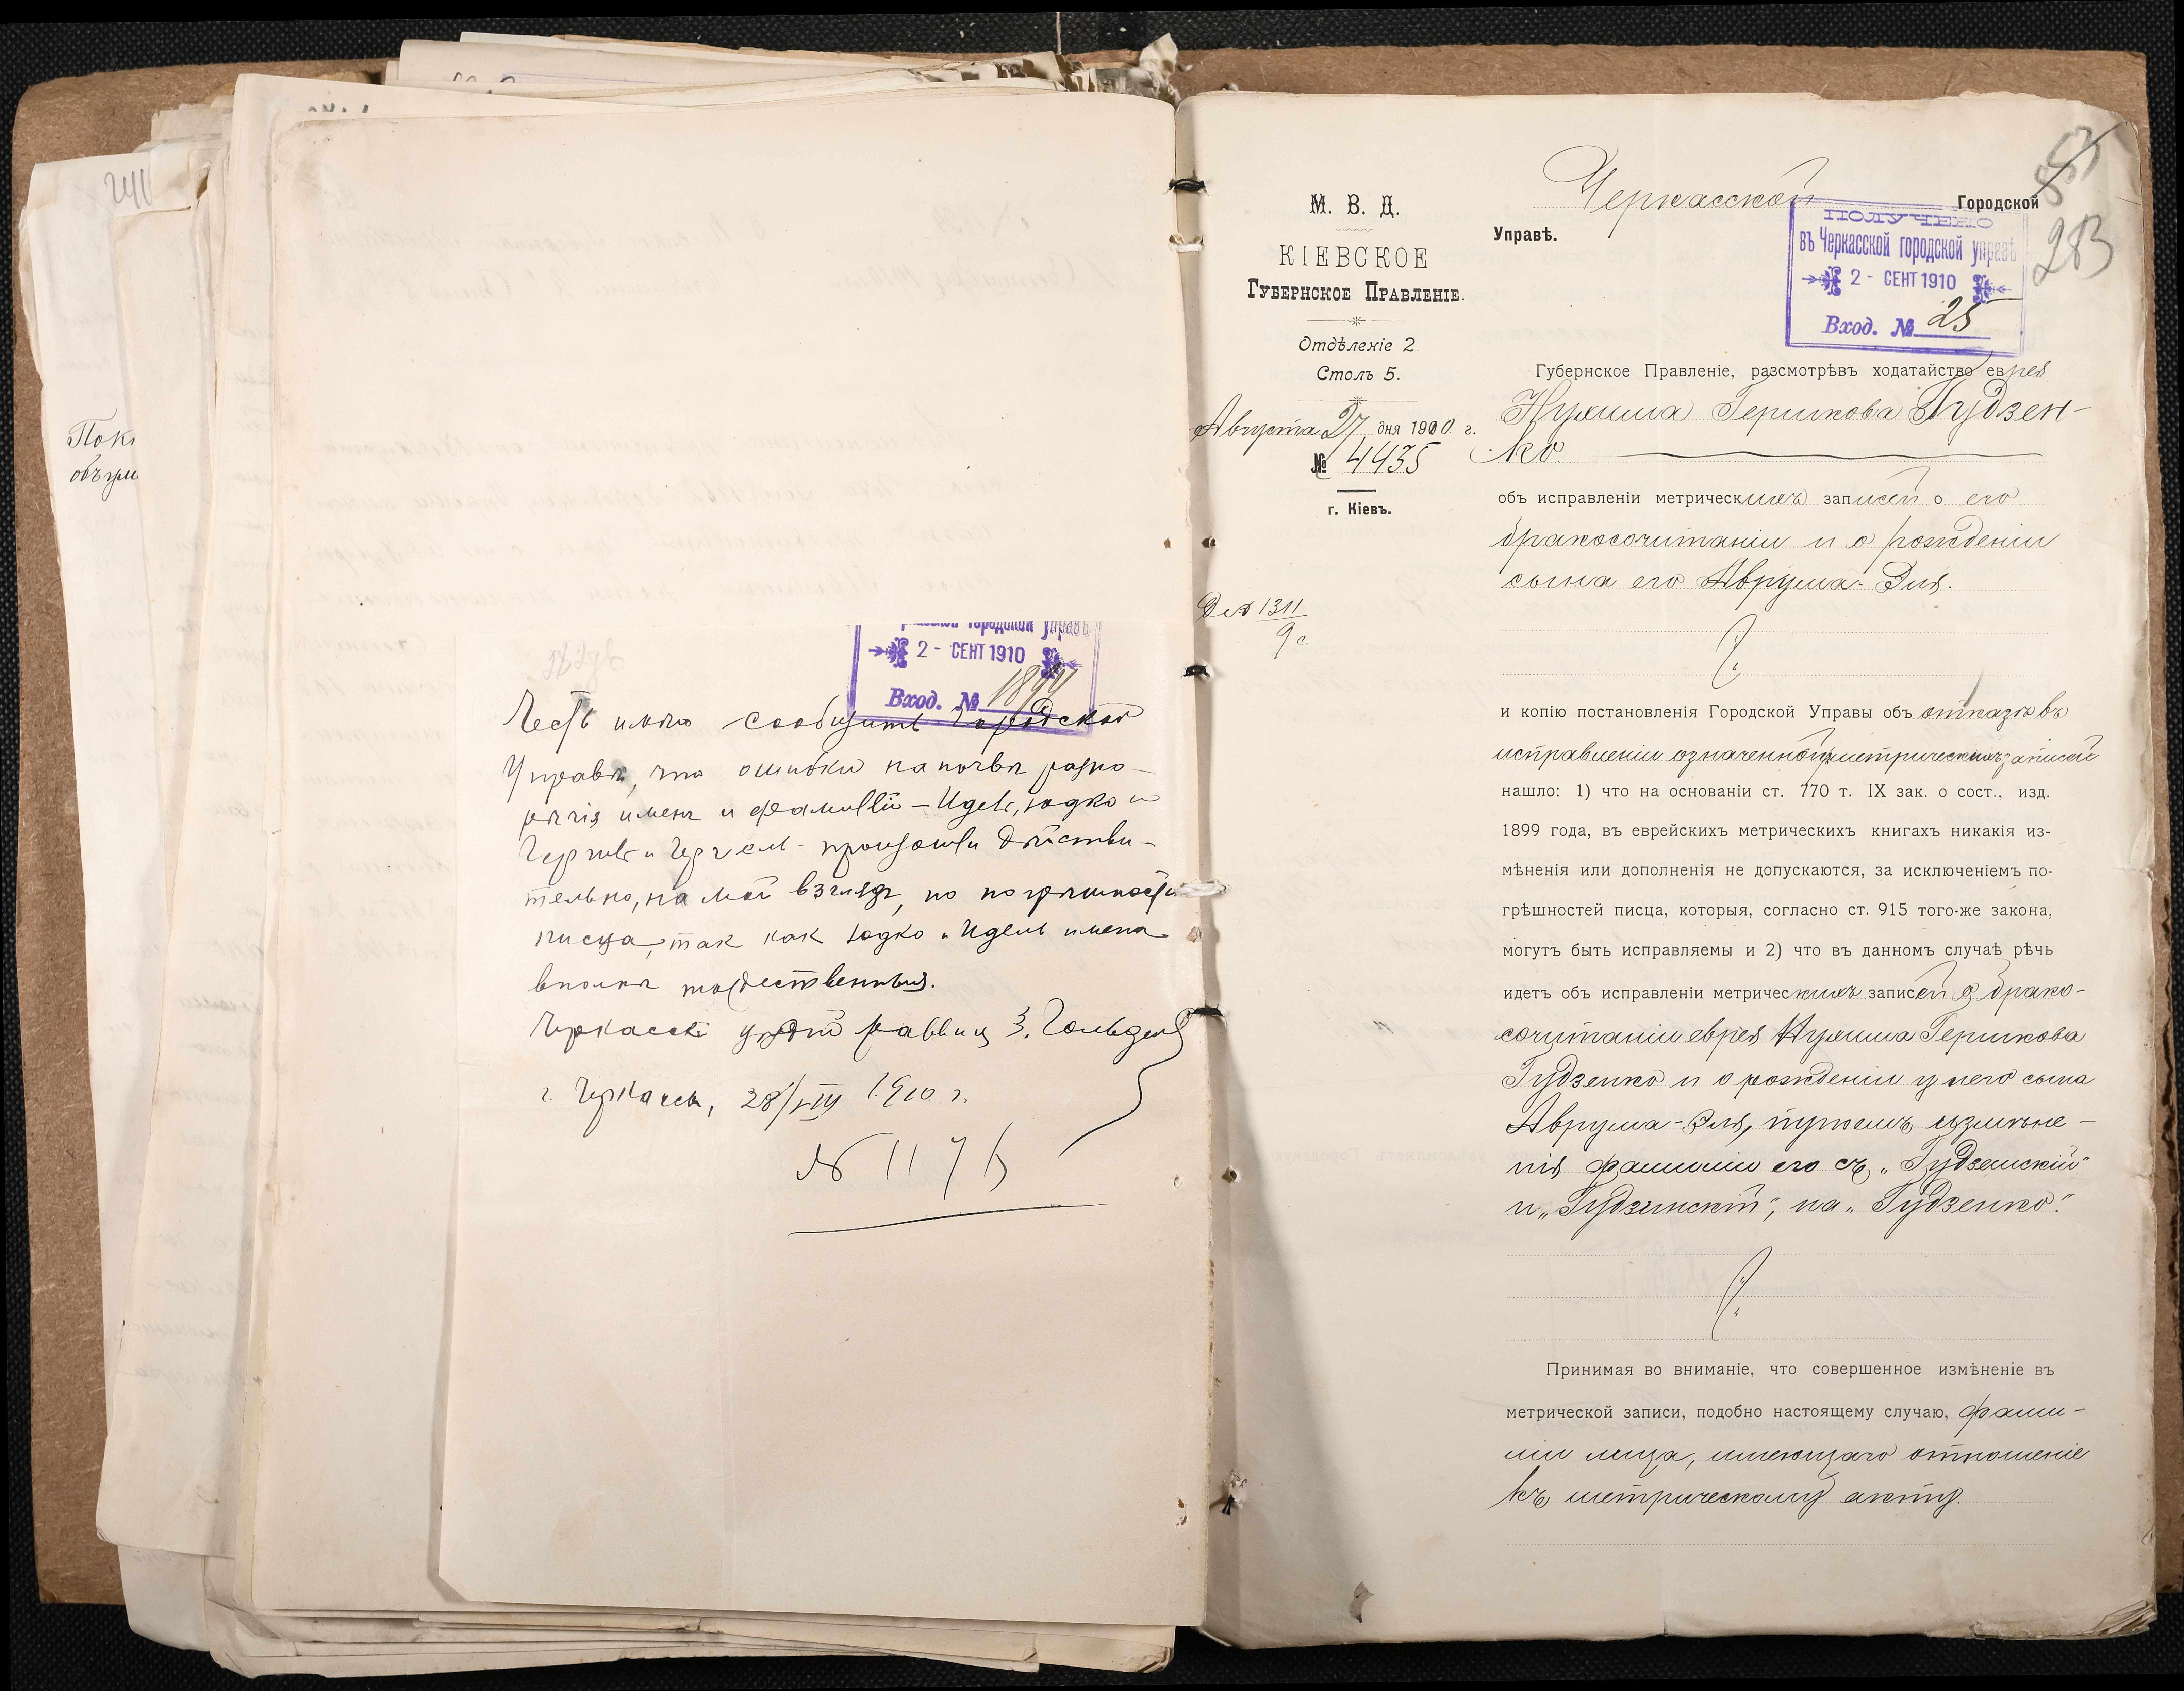 241
Поки
282 об
городской управѣ
2 - СЕНТ 1910
Вход. № 1894
Честь имѣю сообщить Городской
Управѣ, что ошибки на почвѣ разно-
рѣчія именъ и фамилій – Идель, Юдко и
произошли дѣйстви-
тельно, на мой взглядъ, по погрѣшности
писца, так как Юдко и Идель имена
вполнѣ тождественныя.
Черкасскій раввин З.
г. Черкассы, 28/VIII 1910 г.
№ 1176
М. В. Д.
КІЕВСКОЕ
Губернское Правленіе.
Отдѣленіе 2
Столъ 5.
Августа 27 дня 1910 г.
№ 4435
г. Кіевъ.
Дѣло 1311
9 с.
853
283
Черкасской Городской
Управѣ.
ПОЛУЧЕНО
въ Черкасской городской управѣ
2 - СЕНТ 1910
Вход. № 25
Губернское Правленіе, разсмотрѣвъ ходатайство еврея
Нухима Гершкова Гудзен-
ко
объ исправленіи метрическихъ записей о его
бракосочитаніи и о рожденіи
сына его Аврума-Эля.
и копію постановленія Городской Управы объ отказѣ въ
исправленіи означенной метрическихъ записей
нашло: 1) что на основаніи ст. 770 т. IX зак. о сост., изд.
1899 года, въ еврейскихъ метрическихъ книгахъ никакія из-
мѣненія или дополненія не допускаются, за исключеніемъ по-
грѣшностей писца, которыя, согласно ст. 915 того-же закона,
могутъ быть исправляемы и 2) что въ данномъ случаѣ рѣчь
идетъ объ исправленіи метрическихъ записей о брако-
сочитаніи еврея Нухима Гершкова
Гудзенко и о рожденіи у него сына
Аврума-Эля, путемъ измѣне-
нія фамиліи его съ „Гудземскій"
и „Гудзинскій", на „Гудзенко".
Принимая во вниманіе, что совершенное измѣненіе въ
метрической записи, подобно настоящему случаю, фами-
ліи лица, имеющаго отношеніе
къ метрическому акту.